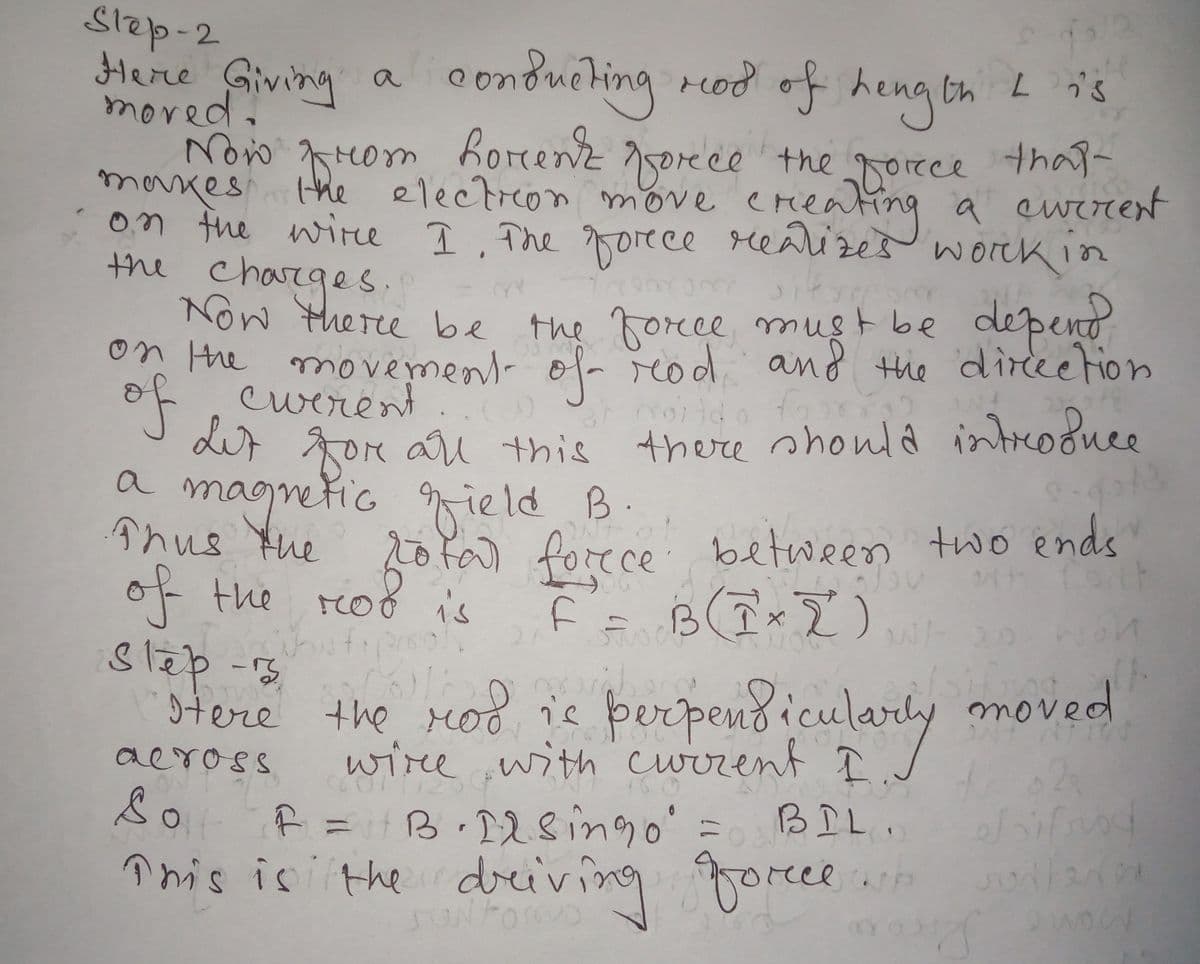 Step-2
Here Giving a conducting rod of length L is
moved.
Now from Lorentz force the force that
makes the electron move creating a current
on the wire I. The force realizes work in
the charges.
Now there be the force must be depend
on the movement of rod and the direction
of current.
Let for all this there should introduce
a magnetic field B.
Thus the total force between two ends
of the rod is F⃗ = B(I⃗ × L⃗)
Step-3
Here the rod is perpendicularly moved
across wire with current I.
So F = B·Il sin90° = BIL.
This is the driving force.